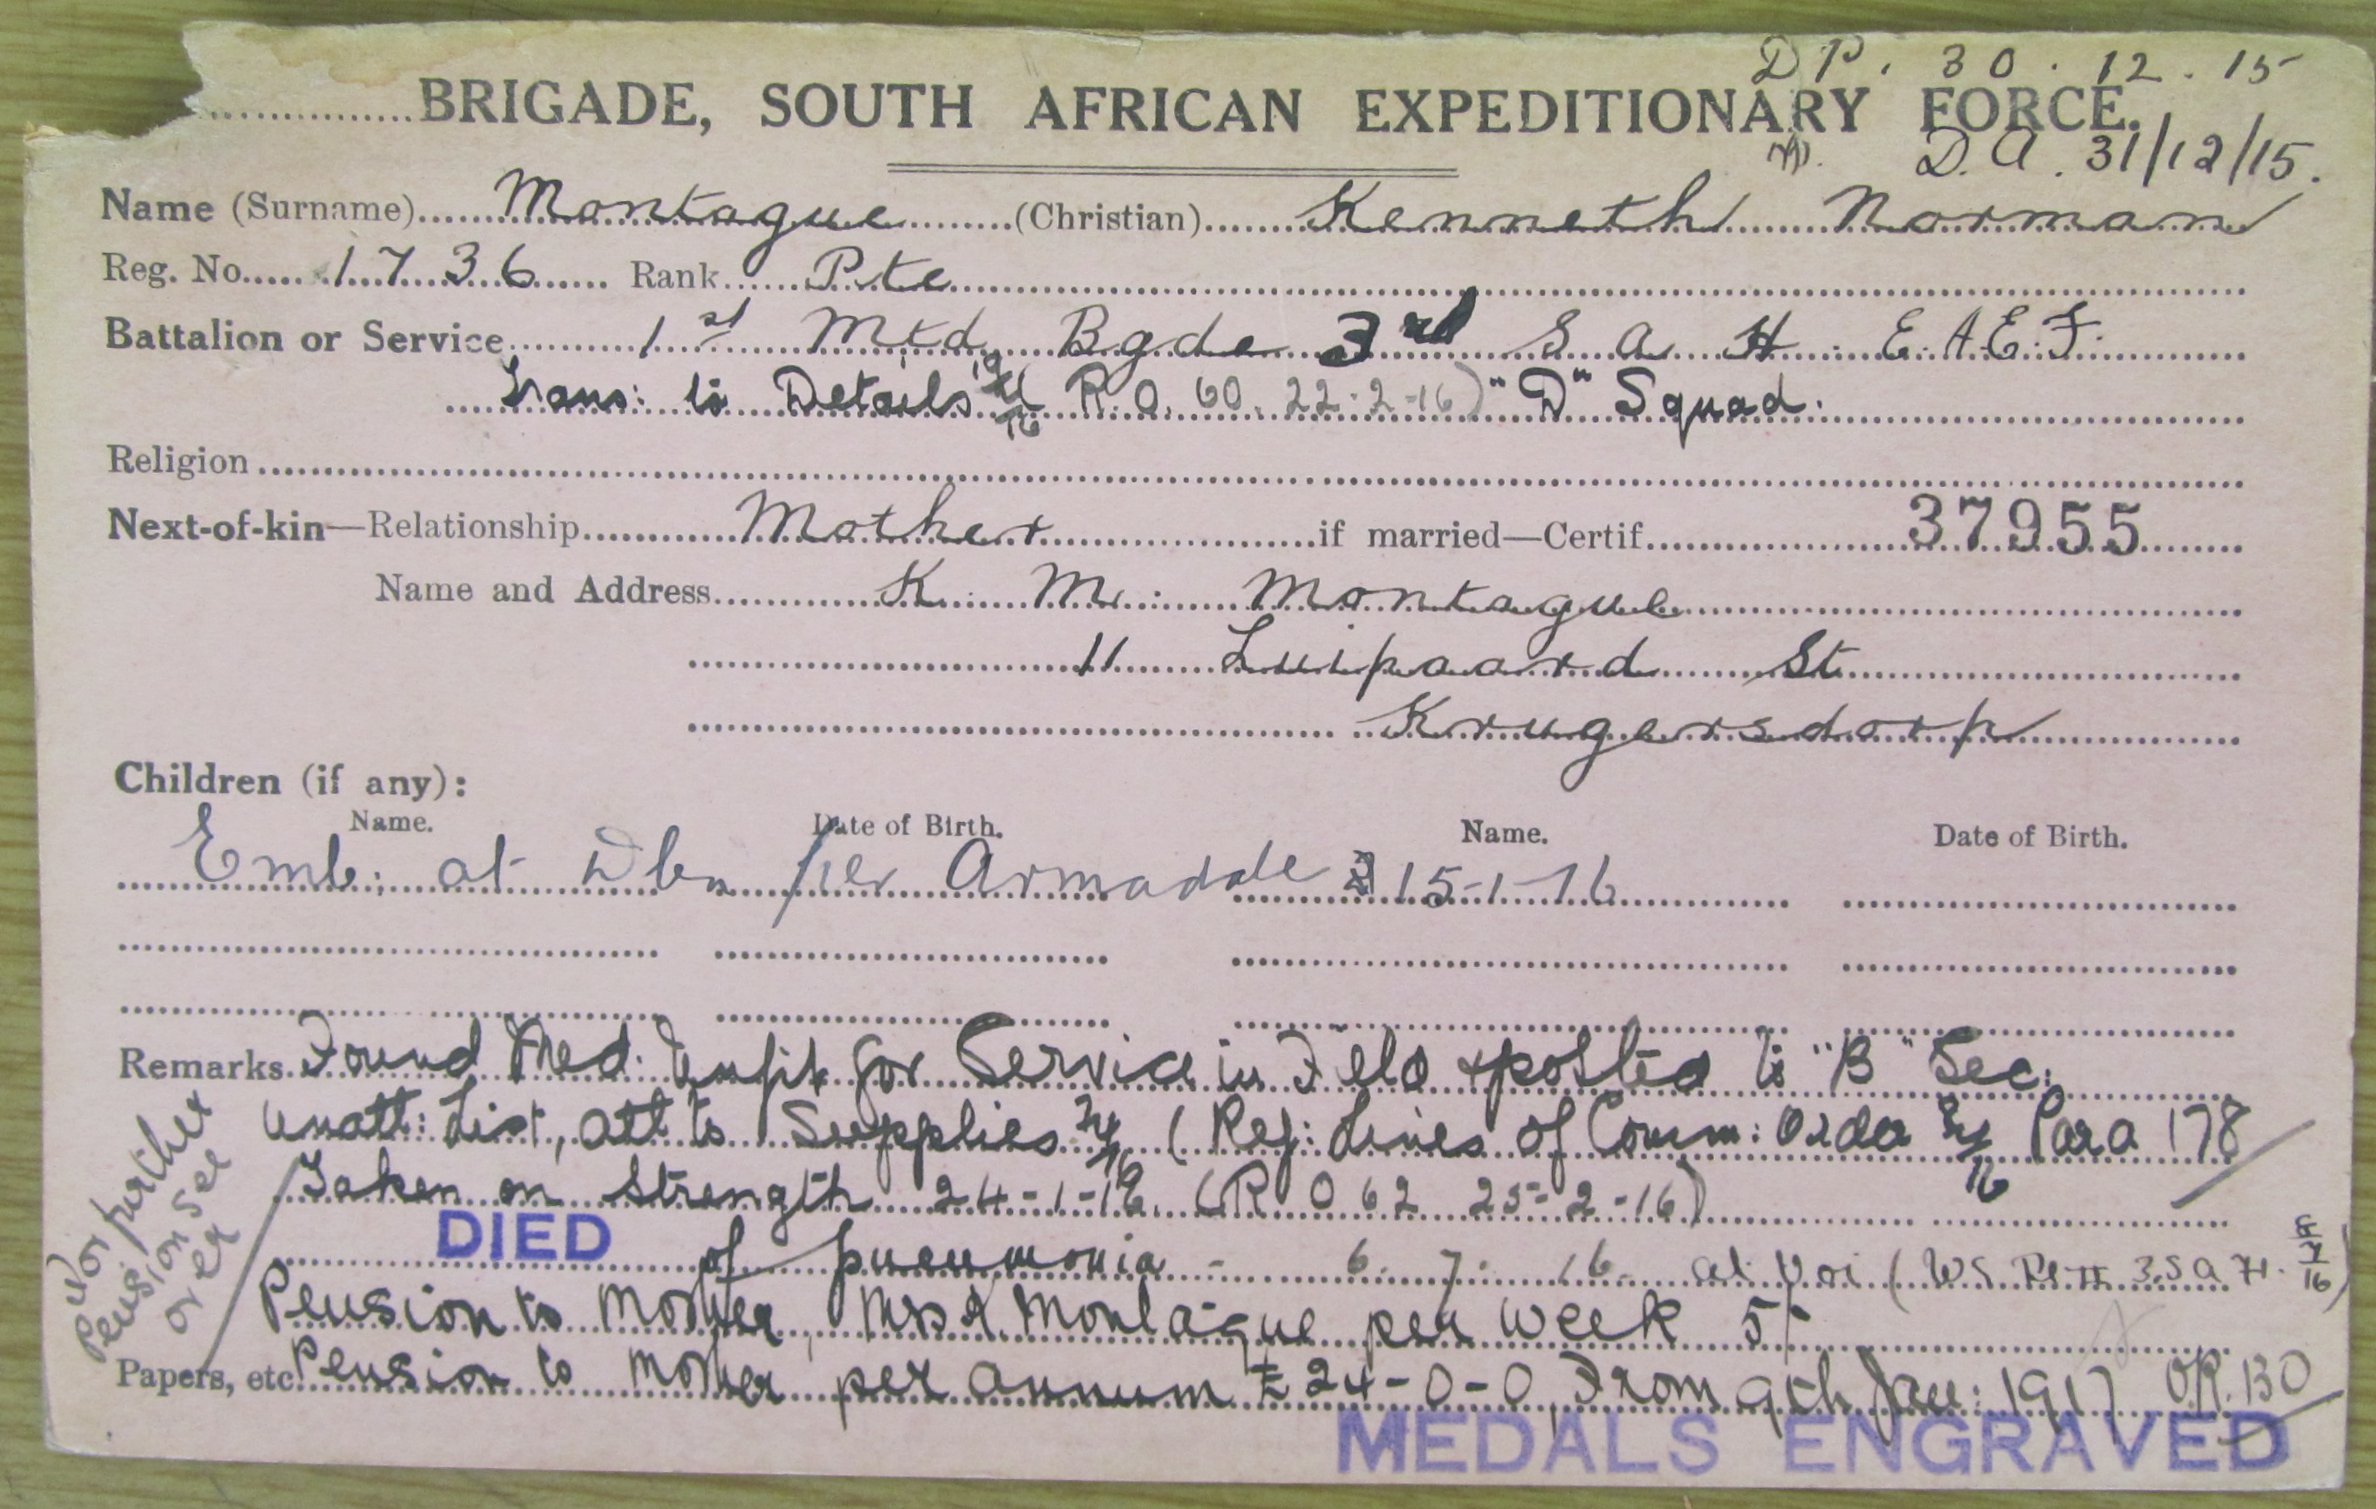 D P. 30.12.15
BRIGADE, SOUTH AFRICAN EXPEDITIONARY FORCE.
D.A. 31/12/15.
Name (Surname) Montague (Christian) Kenneth Norman
Reg. No. 1736 Rank Pte
Battalion or Service 1st Mtd Bgde 3rd S A H E.A.E.F.
Trans: to Details (R.O. 60. 22-2-16) "D" Squad.
Religion
Next-of-kin—Relationship Mother if married—Certif. 37955
Name and Address K. M. Montague
11 Luipaard St
Krugersdorp
Children (if any):
Name. Date of Birth. Name. Date of Birth.
Emb: at Dbn per Armadale 15-1-16
Remarks. Found Med. Unfit for Service in Field & posted to "B" Sec:
Unatt: List, att to Supplies (Ref: Lines of Comm: Order Para 178
Taken on Strength 24-1-16. (R O 62 25-2-16)
DIED of pneumonia - 6. 7. 16. at Voi (W.S. 3.S.A.H.
Pension to Mother, Mrs K. Montague per week 5/-
Papers, etc. Pension to Mother per annum £24-0-0 From 9th Jan: 1917 OR.130
For further
Pension see
over
MEDALS ENGRAVED